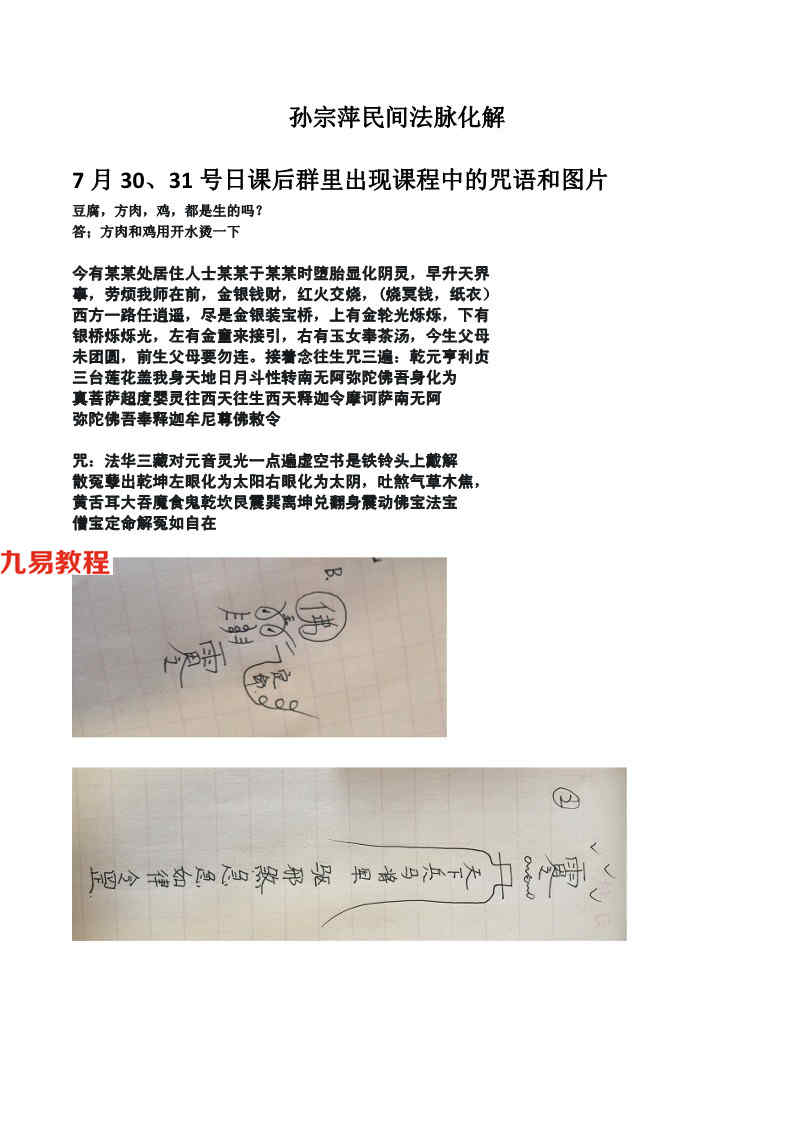 孙宗萍民间法脉化解
7 月 30、31 号日课后群里出现课程中的咒语和图片
豆腐，方肉，鸡，都是生的吗？
答；方肉和鸡用开水烫一下
今有某某处居住人士某某于某某时堕胎显化阴灵，早升天界
事，劳烦我师在前，金银钱财，红火交烧，（烧冥钱，纸衣）
西方一路任逍遥，尽是金银装宝桥，上有金轮光烁烁，下有
银桥烁烁光，左有金童来接引，右有玉女奉茶汤，今生父母
未团圆，前生父母要勿连。接着念往生咒三遍：乾元亨利贞
三台莲花盖我身天地日月斗性转南无阿弥陀佛吾身化为
真菩萨超度婴灵往西天往生西天释迦令摩诃萨南无阿
弥陀佛吾奉释迦牟尼尊佛敕令
咒：法华三藏对元音灵光一点遍虚空书是铁铃头上戴解
散冤孽出乾坤左眼化为太阳右眼化为太阴，吐煞气草木焦，
黄舌耳大吞魔食鬼乾坎艮震巽离坤兑翻身震动佛宝法宝
僧宝定命解冤如自在
九易教程
B.
佛
定命
②
天下兵马将军 驱邪煞急急如律令罡